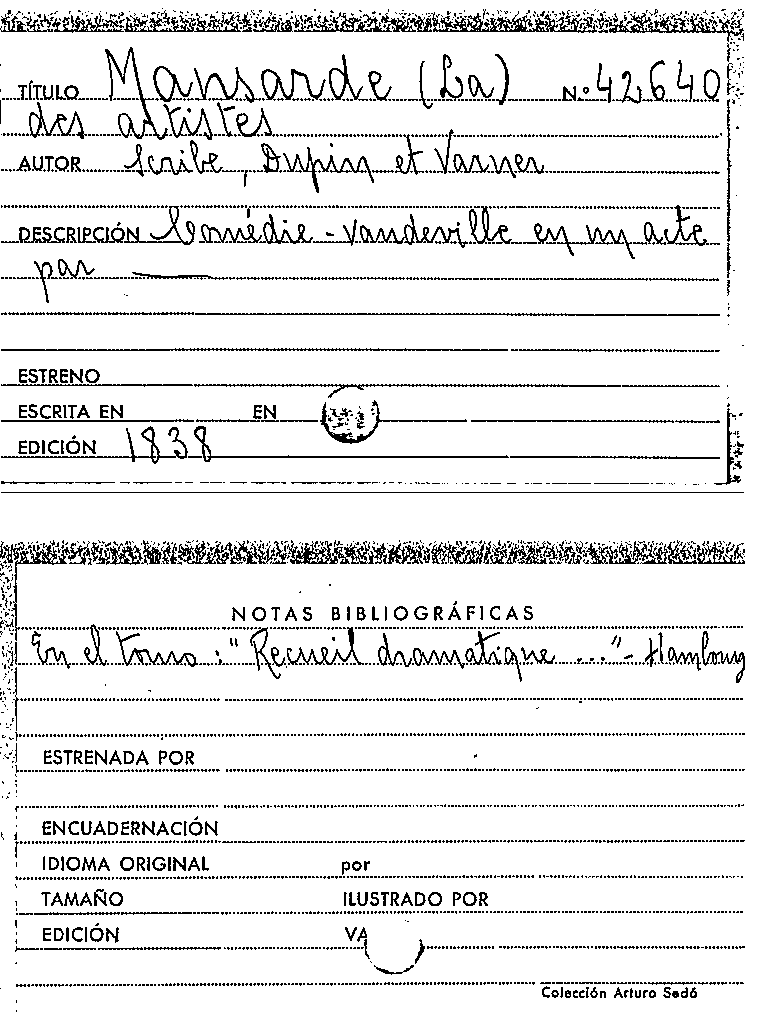 TÍTULO Mansarde (La) N.º 42640
des artistes
AUTOR Scribe, Dupin et Varner
DESCRIPCIÓN Comédie-vaudeville en un acte
par ———
ESTRENO
ESCRITA EN EN
EDICIÓN 1838
NOTAS BIBLIOGRÁFICAS
En el tomo: "Recueil dramatique ..." - Hambourg
ESTRENADA POR
ENCUADERNACIÓN
IDIOMA ORIGINAL por
TAMAÑO ILUSTRADO POR
EDICIÓN VA
Colección Arturo Sedó